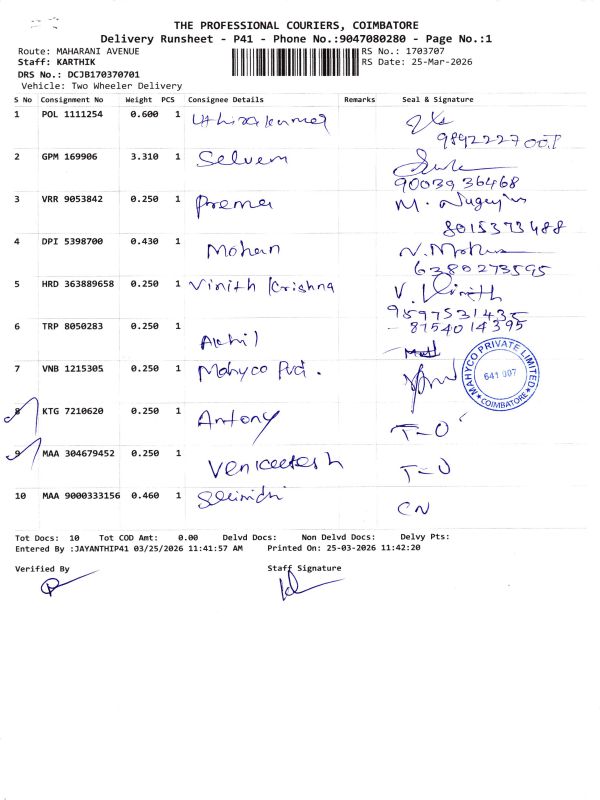 THE PROFESSIONAL COURIERS, COIMBATORE
Delivery Runsheet - P41 - Phone No.:9047080280 - Page No.:1
Route: MAHARANI AVENUE RS No.: 1703707
Staff: KARTHIK RS Date: 25-Mar-2026
DRS No.: DCJB170370701
Vehicle: Two Wheeler Delivery
S No Consignment No Weight PCS Consignee Details Remarks Seal & Signature
1 POL 1111254 0.600 1 Uthirakumar
2 GPM 169906 3.310 1 Selvem
9003936468
3 VRR 9053842 0.250 1 Prema M.
8015373488
4 DPI 5398700 0.430 1 Mohan
6380273595
5 HRD 363889658 0.250 1 Vinith Krishna V. Vinith
9597531435
6 TRP 8050283 0.250 1 Akhil 8754014395
7 VNB 1215305 0.250 1 Mahyco Pvt.
MAHYCO PRIVATE LIMITED
641 007
COIMBATORE
8 KTG 7210620 0.250 1 Antony T-O
9 MAA 304679452 0.250 1 Venkatesh T-O
10 MAA 9000333156 0.460 1 CN
Tot Docs: 10 Tot COD Amt: 0.00 Delvd Docs: Non Delvd Docs: Delvy Pts:
Entered By :JAYANTHIP41 03/25/2026 11:41:57 AM Printed On: 25-03-2026 11:42:20
Verified By Staff Signature